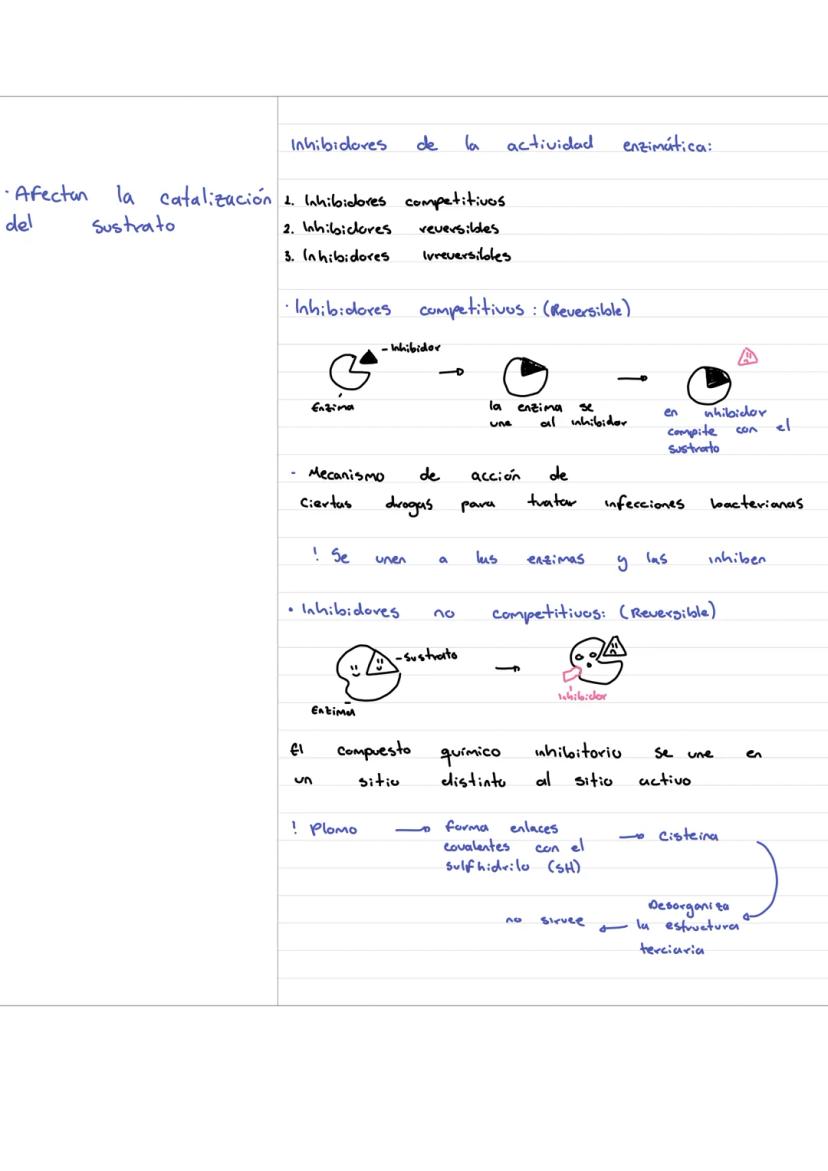 Inhibidores de la actividad enzimática:
· Afectan la catalización
del sustrato
1. Inhibidores competitivos
2. Inhibidores reversibles
3. Inhibidores irreversibles
· Inhibidores competitivos : (Reversible)
- Inhibidor
Enzima
la enzima se
une al inhibidor
en inhibidor
compite con el
sustrato
- Mecanismo de acción de
ciertas drogas para tratar infecciones bacterianas
! Se unen a las enzimas y las inhiben
• Inhibidores no competitivos: (Reversible)
- Sustrato
Enzima
Inhibidor
El compuesto químico inhibitorio se une en
un sitio distinto al sitio activo
! Plomo → forma enlaces
covalentes con el
sulfhidrilo (SH)
→ Cisteína
Desorganiza
la estructura
terciaria
← no sirvee